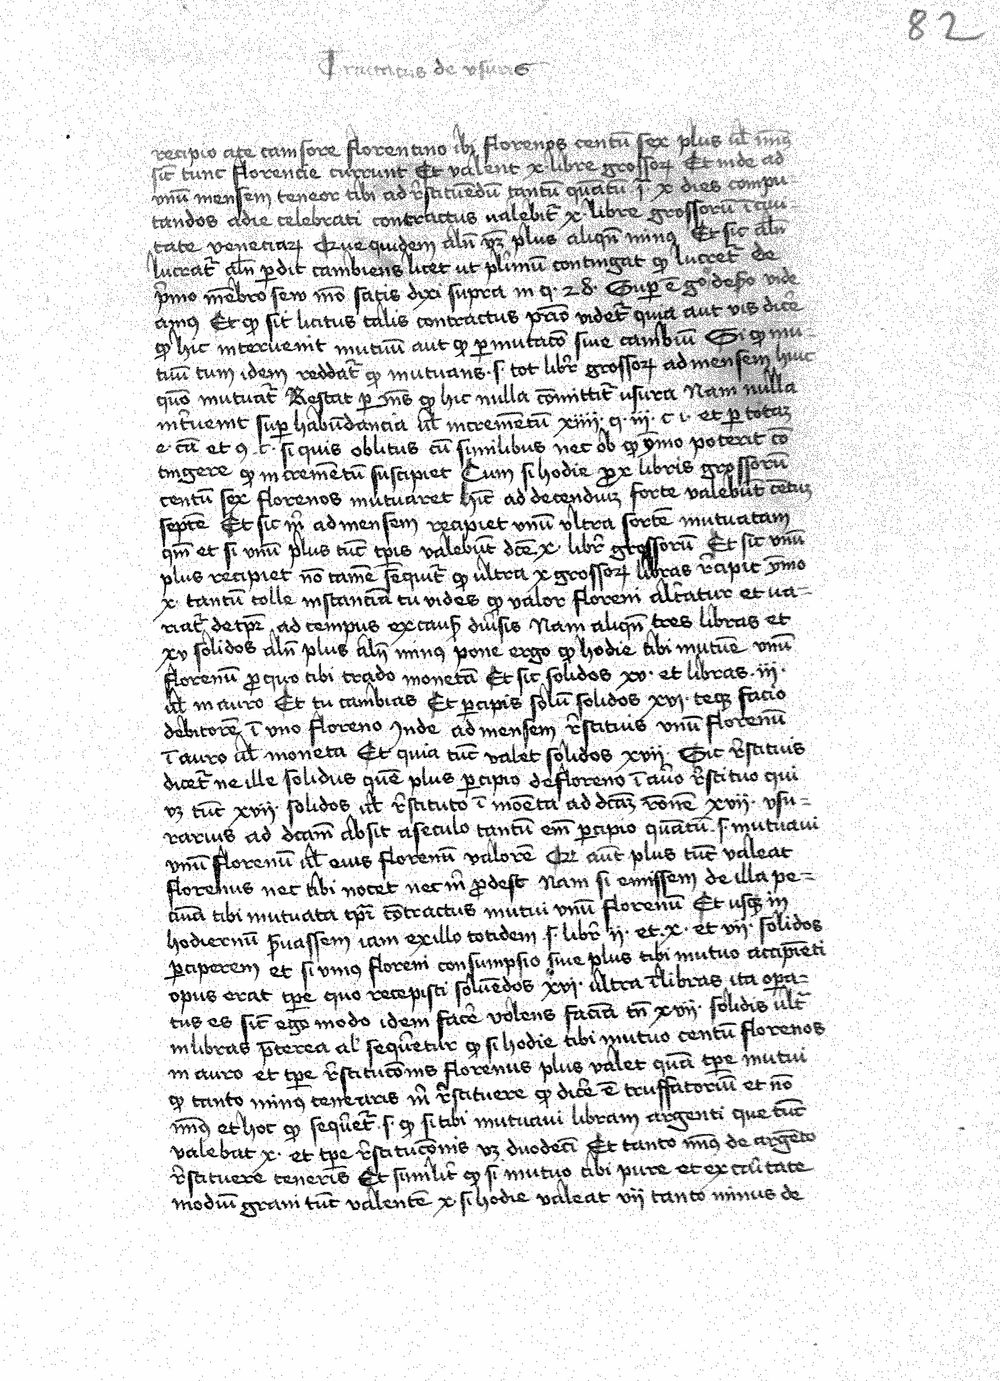 82
Tractatus de vsuris
recipio a te camsore florentino ibi florenos centū sex plus ul̄ min9
sic̄ tunc florencie currunt Et valent x libre grossoꝝ Et inde ad
vnū mensem teneor tibi ad r̄stituēdū tantū quātū ī x dies compu-
tandos a die celebrati contractus ualebit̄ x libre grossorū ī ciui-
tate veneciaꝝ Que quidem aln̄ vꝫ plus aliqn̄ min9 Et sic aln̄
lucrat̄ aln̄ ꝑdit cambiens licet ut pl̄imū contingat ꝙ lucret̄ de
p̄mo mēbro seu mō satis dixi supra in q. 28. Suꝑ ē g° debo vide
am9 Et ꝙ sit licitus talis contractus videt̄ quia aut vis dic̄e
ꝙ hic interuenit mutuū aut ꝙ ꝑmutacō siue cambiū Si ꝙ mu-
tuū tum idem reddat̄ ꝙ mutuans .s. tot libr̄ grossoꝝ ad mensem huic
quō mutuat̄ Restat ꝙ hic nulla cōmittit̄ usura Nam nulla
int̄uenit suꝑ habūdancia ul̄ incremētū xiiii. q. iii. c i. et ꝑ totaꝫ
si quis oblitus cū similibus nec ob ꝙ ymo poterit cō
tingere ꝙ incremētū suscipiet Cum si hodie ꝓ x libris grossorū
centū sex florenos mutuaret hic̄ ad decenduꝫ forte valebūt cētuꝫ
septē Et sic m̄ ad mensem recipiet vnū vltra sortē mutuatam
qm̄ et si vnū plus tūc tꝑis valebūt dc̄e x. libr̄ grossorū Et sic vnū
plus recipiet nō tamē seq̄uit̄ ꝙ ultra x grossoꝝ libras r̄cipit ymo
x. tantū tolle instanciā tu vides ꝙ valor floreni alt̄atur et ua-
riat̄ de tꝑe ad tempus ex causis diūsis Nam aliqn̄ tres libras et
xv solidos aln̄ plus aln̄ min9 pone ergo ꝙ hodie tibi mutuē vnū
florenū ꝓ quo tibi trado monetā Et sic solidos xv. et libras .iii.
ul̄ in auro Et tu cambias Et ꝑcipis solū solidos xvi. teqꝫ facio
debitorē ī vno floreno Inde ad mensem r̄stituis vnū florenū
ī auro ul̄ moneta Et quia tūc valet solidos xvii. Sic r̄stituis
dicet̄ ne ille solidus quē plus ꝑcipio de floreno ī auro r̄stituo qui
vꝫ tūc xvii. solidos ul̄ r̄stituto ī moēta ad dcāꝫ rōnē xvii. vsu-
rarius ad dcam̄ absit a seculo tantū em̄ ꝑcipio quātū .s. mutuaui
vnū florenū ul̄ eius florenū valorē aūt plus tūc valeat
florenus nec tibi nocet nec m̄ ꝓdest Nam si emissem de illa pe-
cunia tibi mutuata tꝑe cōtractus mutui vnū florenū Et usqꝫ in
hodiernū s̄uassem iam ex illo totidem .s. libr̄ ii. et x. et vii. solidos
ꝑciperem et si vni9 floreni consumpsio siue plus tibi mutuo accipiēti
opus erat tꝑe quo recepisti soluēdos xvi. ultra libras ita oꝑa-
tus es sic̄ ego modo idem fac̄e volens faciā tn̄ xvii. solidis ult̄
iii libras p̄terea al' seq̄uetur ꝙ si hodie tibi mutuo centū florenos
in auro et tꝑe r̄stitucōnis florenus plus valet quā tꝑe mutui
ꝙ tanto min9 teneraris m̄ r̄stituere ꝙ dic̄e ē truffatoriū et nō
min9 et hoc ꝙ seq̄uet̄ .s. ꝙ si tibi mutuaui libram argenti que tūc
valebat x. et tꝑe r̄stitucōnis vꝫ duodeci Et tanto min9 de argēto
r̄stituere teneris Et similit̄ ꝙ si mutuo tibi pure et ex caritate
modiū grani tūc valentē x si hodie valeat vii tanto minus de